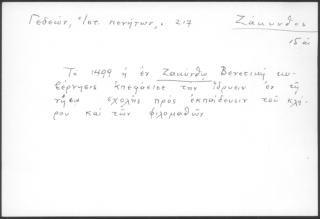 Γεδεών, Ἱστ. πενήτων, σ. 217 Ζάκυνθος
15 αἰ
Τὸ 1499 ἡ ἐν Ζακύνθῳ Βενετικὴ κυ-
βέρνησις ἀπεφάσισε τὴν ἵδρυσιν ἐν τῇ
νήσῳ σχολῆς πρὸς ἐκπαίδευσιν τοῦ κλή-
ρου καὶ τῶν φιλομαθῶν